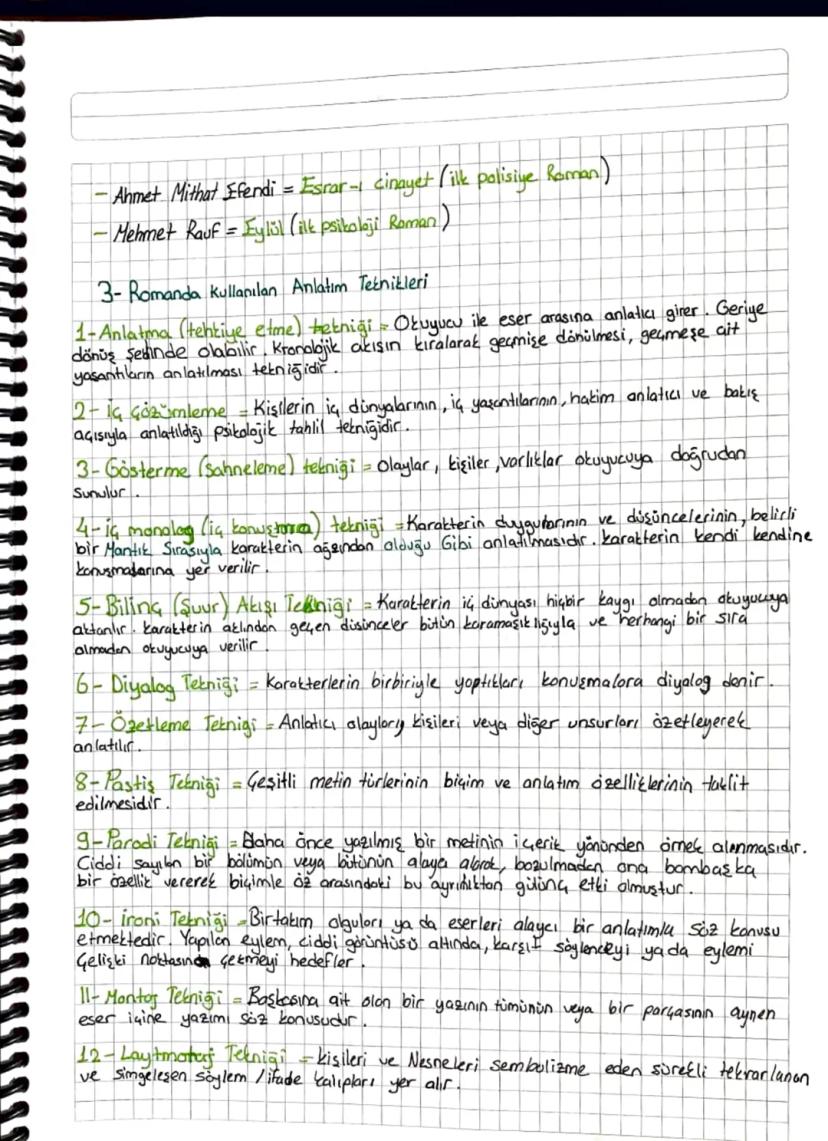 - Ahmet Mithat Efendi = Esrar-ı cinayet (ilk polisiye Roman)
- Mehmet Rauf = Eylül (ilk psikoloji Roman)
3- Romanda Kullanılan Anlatım Teknikleri
1-Anlatma (tehkiye etme) tekniği = Okuyucu ile eser arasına anlatıcı girer. Geriye
dönüş şeklinde olabilir. Kronolojik akışın kıralarak geçmişe dönülmesi, geçmeşe ait
yaşantıların anlatılması tekniğidir.
2- iç çözümleme = Kişilerin iç dünyalarının, iç yaşantılarının, hakim anlatıcı ve bakış
açısıyla anlatıldığı psikolojik tahlil tekniğidir.
3- Gösterme (sahneleme) tekniği = Olaylar, kişiler, varlıklar okuyucuya doğrudan
sunulur.
4- iç monolog (iç konuşma) tekniği = Karakterin duygularının ve düşüncelerinin, belirli
bir Mantık Sırasıyla karakterin ağzından olduğu Gibi anlatılmasıdır. karakterin kendi kendine
konuşmalarına yer verilir.
5- Bilinç (Şuur) Akışı Tekniği = Karakterin iç dünyası hiçbir kaygı olmadan okuyucuya
aktarılır. karakterin aklından geçen düşünceler bütün karamaşıklığıyla ve herhangi bir sıra
olmadan okuyucuya verilir.
6- Diyalog Tekniği = Karakterlerin birbiriyle yaptıkları konuşmalara diyalog denir.
7- Özetleme Tekniği = Anlatıcı olayları, kişileri veya diğer unsurları özetleyerek
anlatılır.
8- Pastiş Tekniği = Çeşitli metin türlerinin biçim ve anlatım özelliklerinin taklit
edilmesidir.
9- Parodi Tekniği = Daha önce yazılmış bir metinin içerik yönünden örnek alınmasıdır.
Ciddi sayılan bir bölümün veya bütünün alaya alarak, bozulmadan ona bambaşka
bir özellik vererek biçimle öz arasındaki bu ayrılıktan gülünç etki olmuştur.
10- ironi Tekniği = Birtakım olguları ya da eserleri alaycı bir anlatımla söz konusu
etmektedir. Yapılan eylem, ciddi görüntüsü altında, karşıt söylenceyi ya da eylemi
Çelişki noktasına çekmeyi hedefler.
11- Montaj Tekniği = Başkasına ait olan bir yazının tümünün veya bir parçasının aynen
eser içine yazımı söz konusudur.
12- Laytmotif Tekniği = kişileri ve Nesneleri sembolizme eden sürekli tekrarlanan
ve simgeleşen söylem / ifade kalıpları yer alır.